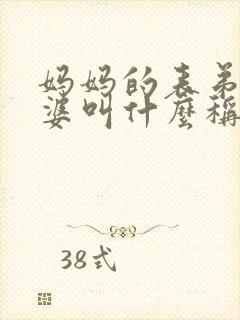 妈妈的表弟
婆叫什麼稱
38式